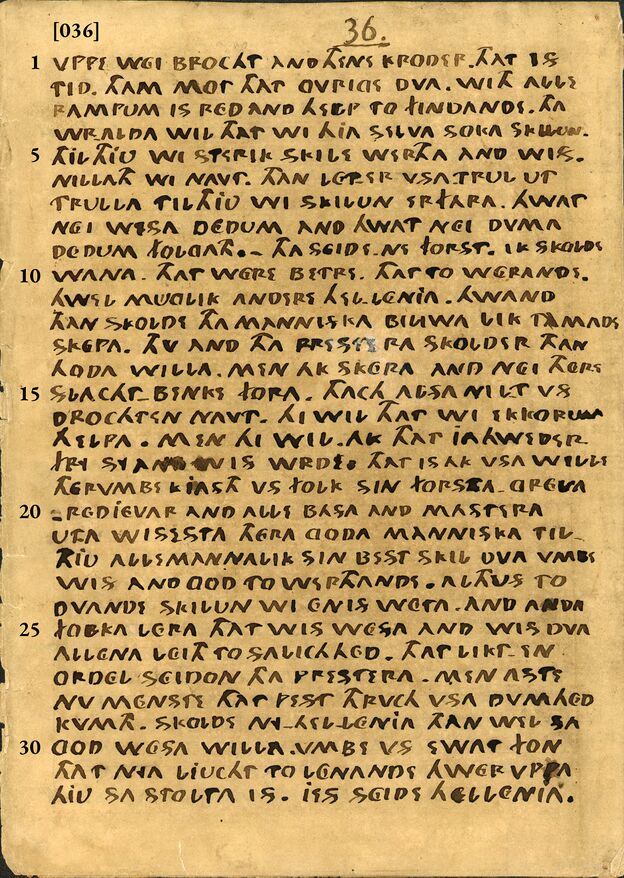 [036]
36.
1 UPPE WEI BROCHT AND THENE KRODER. THAT IS
TID. THAM MOT THAT OVRIGE DVA. WITH ALLE
RAMPUM IS RED AND HELP TO FINDANDE. THA
WRALDA WIL THAT WI HIA SELVA SOKA SKILUN.
5 TIL THIU WI STERIK SKILE WERTHA AND WIS.
NILLATH WI NAVT. THAN LETER USA TRUL UT
TRULLA TIL THIU WI SKILUN ERFARA. HWAT
NEI WISA DEDUM AND HWAT NEI DUMA
DEDUM FOLGATH. - THA SEIDE NE FORST. IK SKOLDE
10 WANA. THAT WERE BETRE. THAT TO WERANDE.
HWEL MUGLIK ANDERE HELLENIA. HWAND
THAN SKOLDE THA MANNISKA BILIWA LIK TAMADE
SKEPA. THU AND THA PRESTERA SKOLDER THAN
HODA WILLA. MEN AK SKERA AND NEI THERE
15 SLACHT-BENKE FORA. THACH ALSA NIL T US
DROCHTEN NAVT. HI WIL THAT WI EKKORUM
HELPA. MEN HI WIL AK THAT JAHWEDER
FRY SY AND WIS WRDE. THAT IS AK USA WILLE
THERUMBE KIASTH US FOLK SIN FORSTA. GREVA
20 REDJEVAR AND ALLE BASA AND MASTERA
UTA WISESTA THERA GODA MANNISKA TIL-
THIU ALLEMANNALIK SIN BEST SKIL DVA UMBE
WIS AND GOD TO WERTHANDE. ALTHUS TO
DVANDE SKILUN WI ENIS WETA. AND ANDA
25 FOLKA LERA THAT WIS WESA AND WIS DVA
ALLENA LEITH TO SALICHHED. THAT LIKT EN
ORDEL SEIDON THA PRESTERA. MEN ASTE
NU MENSTE THAT PEST THRUCH USA DUMHED
KVMTH. SKOLDE NY-HELLENIA THAN WEL SA
30 GOD WESA WILLA. UMBE US EWAT FON
THAT NYA LIUCHT TO LENANDE HWER UPPA
HIU SA STOLTA IS. JES SEIDE HELLENIA.